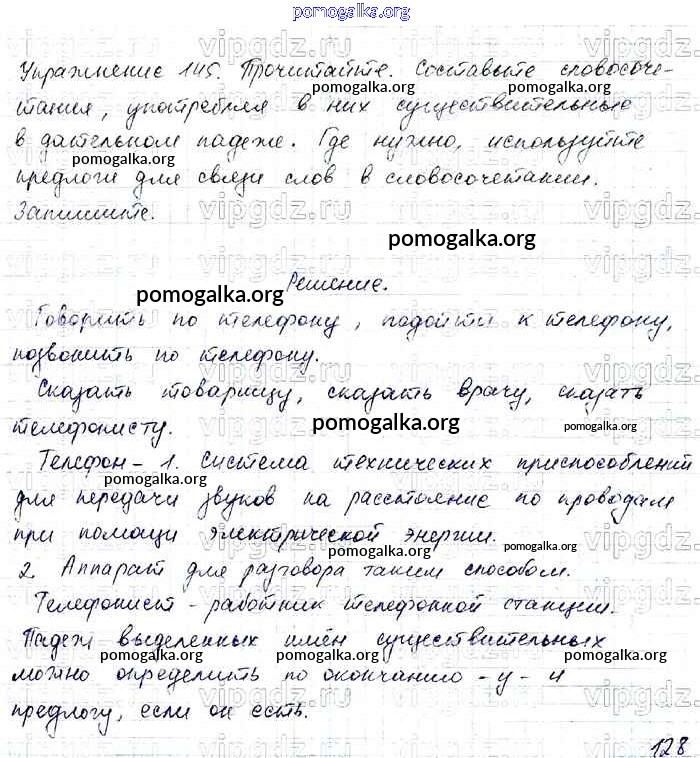 pomogalka.org
Упражнение 145. Прочитайте. Составьте словосоче-
тания, употребляя в них существительные
в дательном падеже. Где нужно, используйте
pomogalka.org pomogalka.org
предлоги для связи слов в словосочетании.
Запишите.
vipgdz.ru vipgdz.ru vipgdz.ru
pomogalka.org
Решение.
pomogalka.org
Говорить по телефону, подойти к телефону,
позвонить по телефону.
Сказать товарищу, сказать врачу, сказать
телефонисту.
pomogalka.org pomogalka.org
Телефон - 1. Система технических приспособлений
pomogalka.org
для передачи звуков на расстояние по проводам
при помощи электрической энергии.
pomogalka.org pomogalka.org
2. Аппарат для разговора таким способом.
Телефонист - работник телефонной станции.
Падеж выделенных имён существительных
pomogalka.org pomogalka.org pomogalka.org
можно определить по окончанию -у- и
предлогу, если он есть.
128